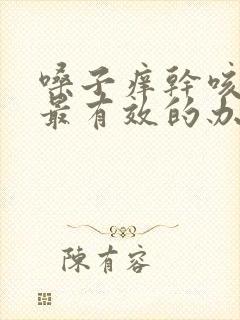 嗓子痒幹咳
最有效的办
陳有容